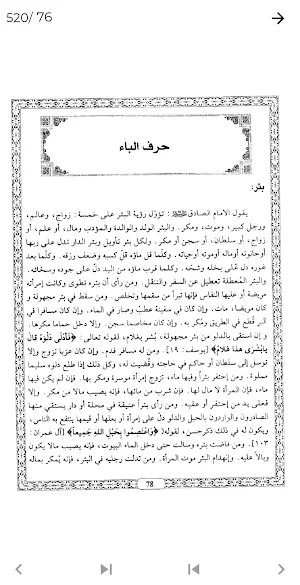 520/ 76
حرف الباء
بئر:
يقول الامام الصادق : تؤوّل رؤية البئر على خمسة : زواج، وعالم،
ورجل كبير، وموت، ومكر. والبئر الولد والوالدة والمؤدب ومال، أو علم، أو
زواج، أو سلطان، أو سجن أو مكر. ولكل بئر تأويل وبئر الدار تدل على ربها
أوحانوته أوماله أوموته أوحياته. وكلما قل ماؤه قلّ كسبه وضعف رزقه. وكلما بعد
غوره دل على بخله وشحّه. وكلما قرب ماؤه من اليد دلّ على جوده وسخائه.
والبئر المعطلة تعطيل عن السفر والتنقل. ومن رأى أن بئره تطوى وكانت إمرأته
مريضة أو عليها النفاس فإنها تبرأ من سقمها وتخلص. ومن سقط في بئر مجهولة و
كان مريضا، مات. وإن كان في سفينة عطب وصار في الماء. وإن كان مسافرا في
البر قُطع في الطريق ومُكر به. وإن كان مخاصما سجن. وإلا دخل حماما مكرها.
و إن استقى بالدلو من بئر مجهولة، بُشر بغلام، لقوله تعالى: ﴿فَأَدْلَى دَلْوَهُ قَالَ
يا بُشْرَى هذا غُلامٌ﴾ [يوسف: ١٩]. ومنه مسافر قدم. وإن كان عزبا تزوج وإلا
توسل إلى سلطان أو حاكم في حاجته وقُضيت له، وكل ذلك إذا طلع دلوه سليما
مملوءة. ومن إحتفر بئراً وفيها ماء، تزوج إمرأة موسرة ومكر بها. فإن لم يكن فيها
ماء، فإن المرأة لا مال لها. فإن شرب من مائها، فإنه يصيب مالا من مكر. وإلا
فعلى يد من إحتفر أو عقبه. ومن رأى بئراً عتيقة في محلة أو دار يستقي منها
الصادرون والواردون بالحبل والدلو دلّ على إمرأة أو بعلها أو قيمها ينتفع به الناس،
ويكون له في ذلك ذكرحسن، لقوله( ﴿وَاعْتَصِمُوا بِحَبْلِ اللهِ جَمِيعاً﴾ [آل عمران:
١٠٣]. ومن فاضت بئره وسالت حتى دخل الماء البيوت، فإنه يصيب مالا يكون
وبالا عليه. وإنهدام البئر موت المرأة. ومن تدلت رجليه في البئر، فإنه يُمكر بماله
78